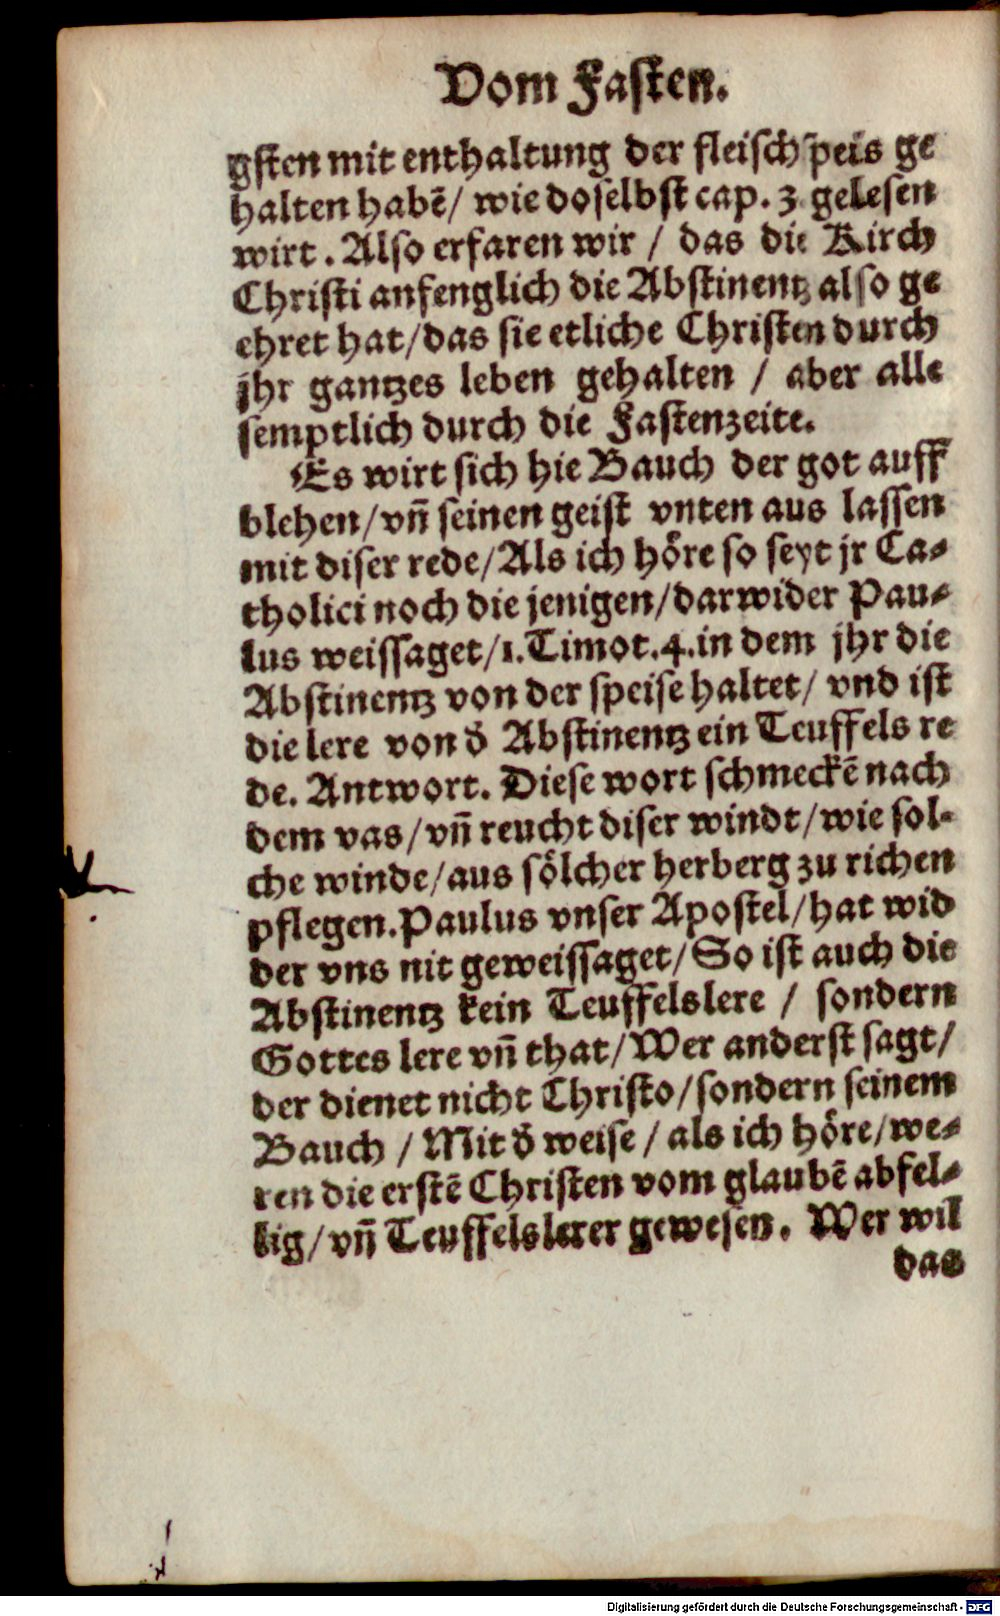 Vom Fasten.
gsten mit enthaltung der fleisch speis ge
halten habē/ wie doselbst cap. 3 gelesen
wirt. Also erfaren wir / das die Kirch
Christi anfenglich die Abstinentz also ge
ehret hat/das sie etliche Christen durch
jhr gantzes leben gehalten / aber alle
semptlich durch die Fastenzeite.
Es wirt sich hie Bauch der got auff
blehen/vn̄ seinen geist vnten aus lassen
mit diser rede/Als ich höre so seyt jr Ca-
tholici noch die jenigen/darwider Pau-
lus weissaget/1.Timot.4.in dem jhr die
Abstinentz von der speise haltet/ vnd ist
die lere von d̄ Abstinentz ein Teuffels re
de. Antwort. Diese wort schmeckē nach
dem vas/vn̄ reucht diser windt/wie sol-
che winde/aus sölcher herberg zu richen
pflegen.Paulus vnser Apostel/hat wid
der vns nit geweissaget/So ist auch die
Abstinentz kein Teuffelslere / sondern
Gottes lere vn̄ that/Wer anderst sagt/
der dienet nicht Christo/sondern seinem
Bauch / Mit d̄ weise / als ich höre/we-
ren die erstē Christen vom glaubē abfel-
lig/vn̄ Teuffelslerer gewesen. Wer wil
das
Digitalisierung gefördert durch die Deutsche Forschungsgemeinschaft - DFG